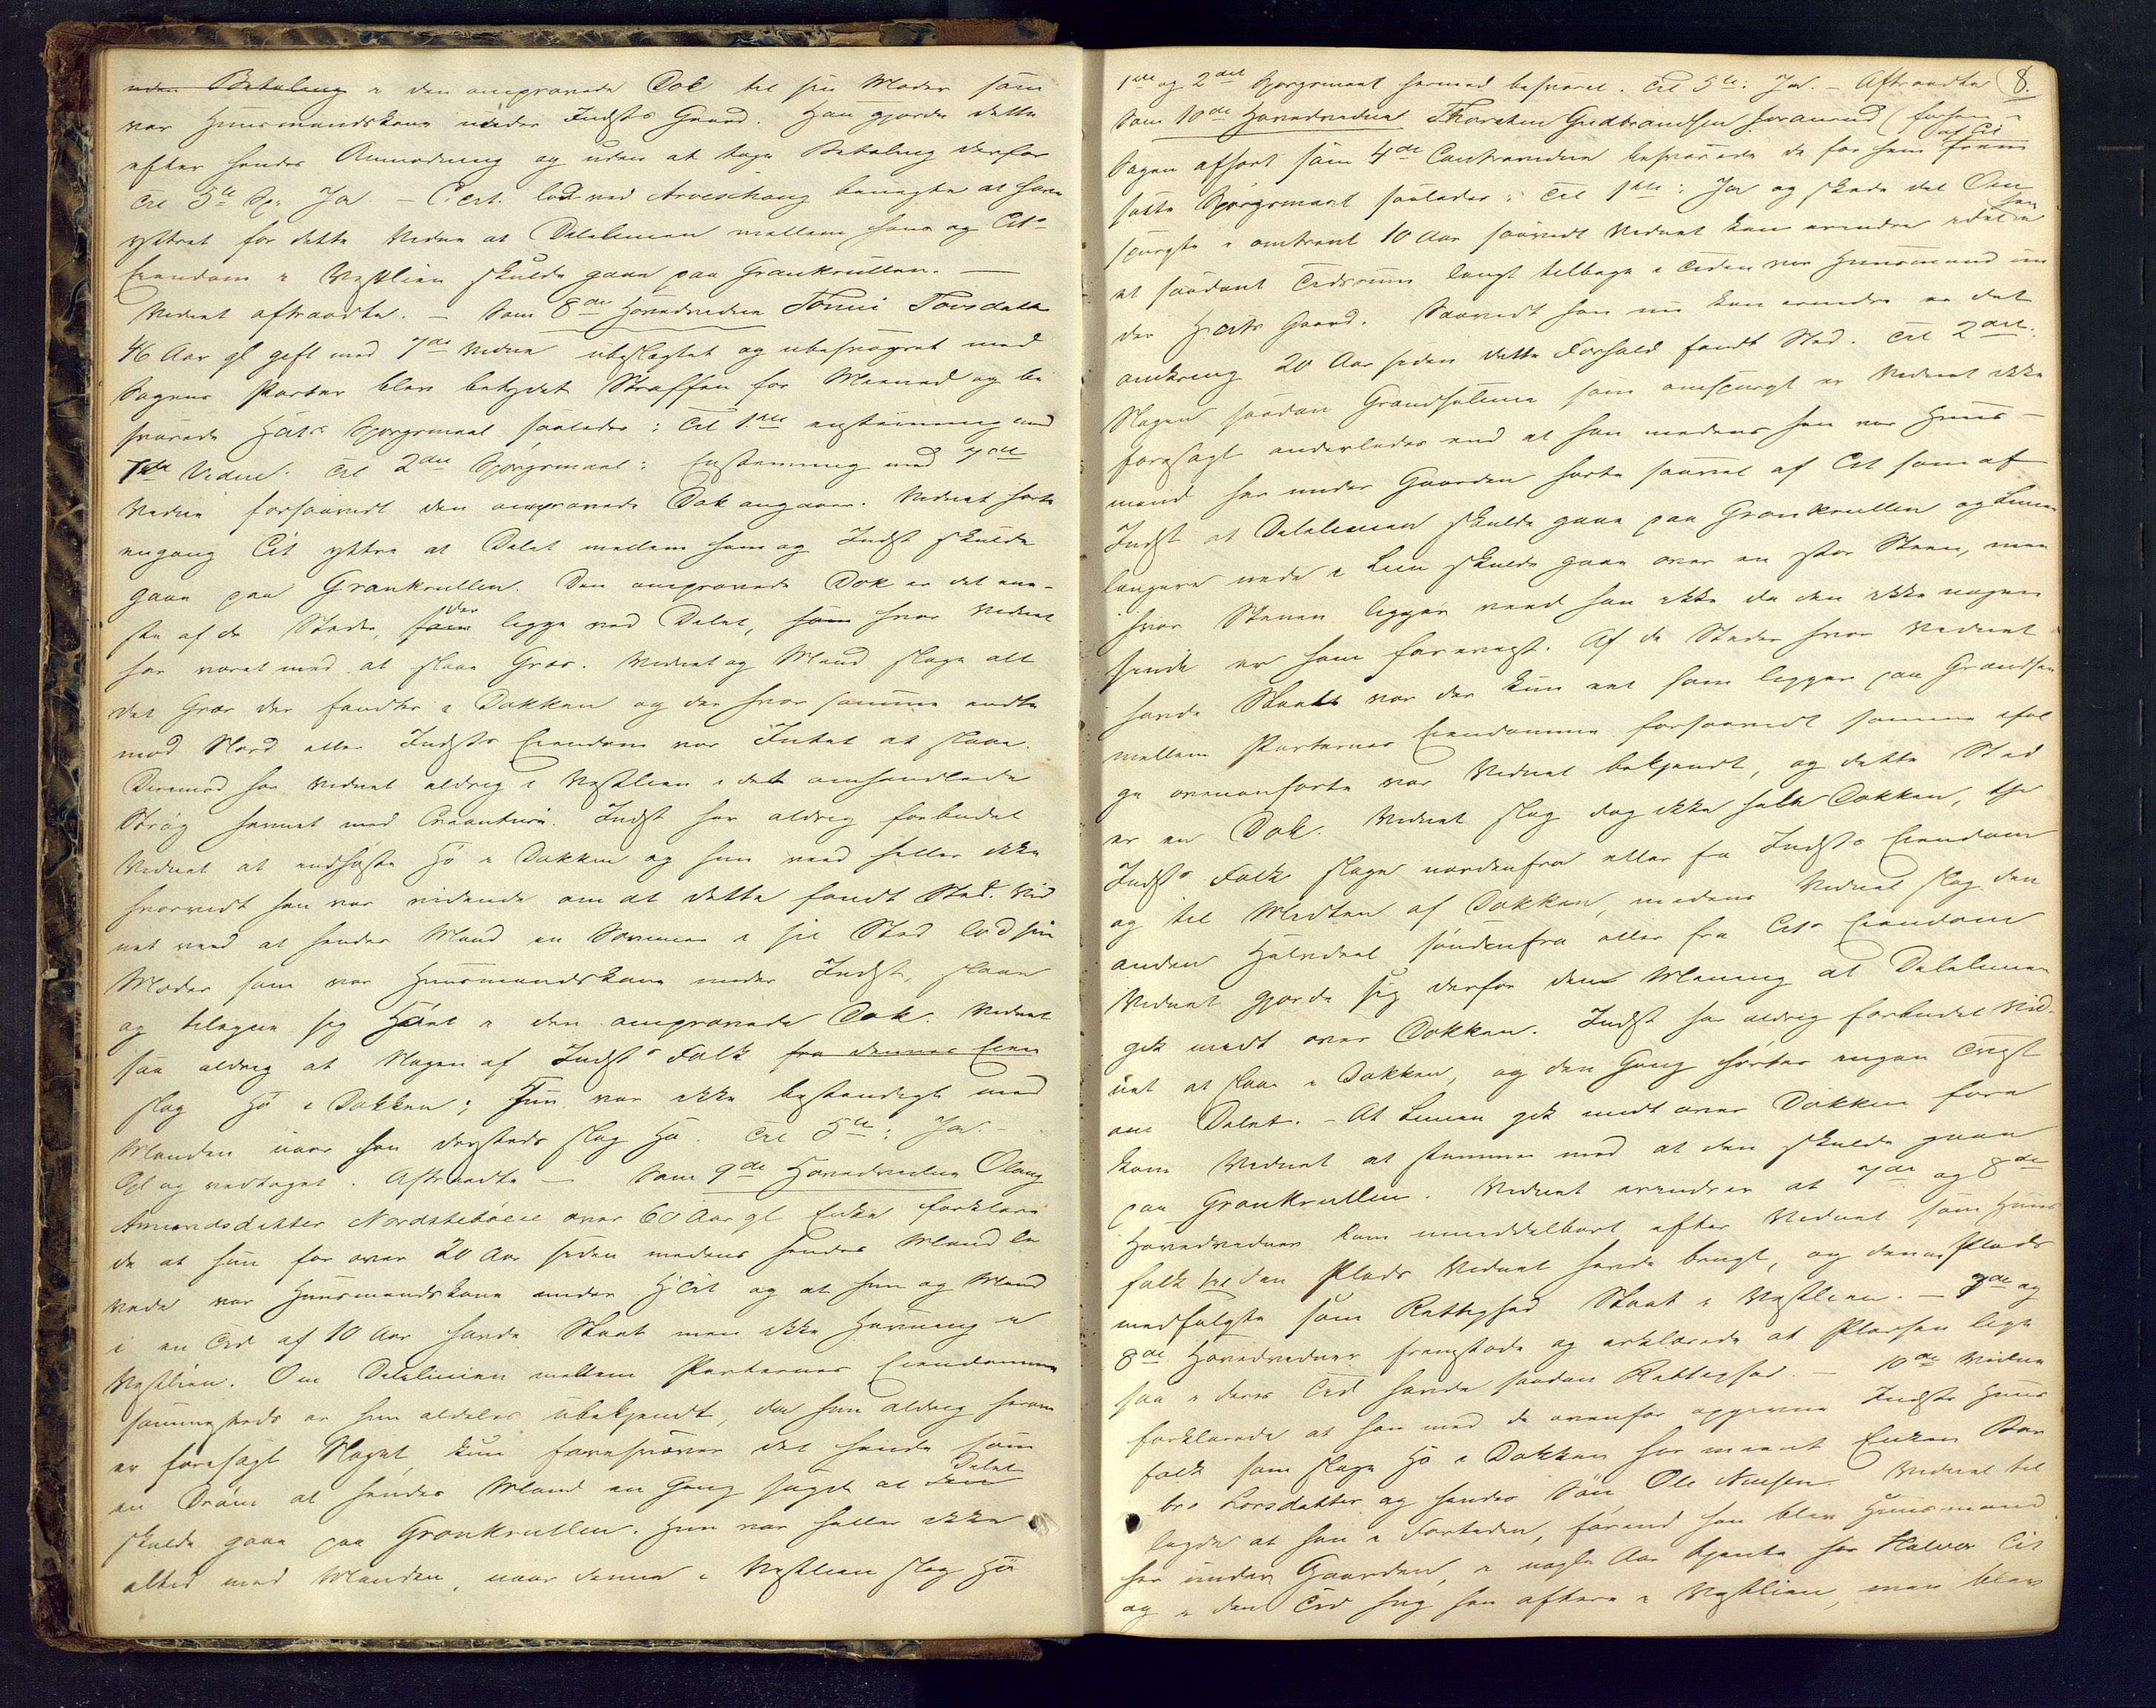 uden Betaling i den omprovede Dok til sin Moder som
var Huusmandskone under Indst's Gaard. Han gjorde dette
efter hendes Anmodning og uden at tage Betaling derfor
Til 5te Sp: Ja – Cit. lod ved Arveschoug benegte at have
yttret for dette Vidne at Delelinien mellem ham og Cit's
Eiendom i Vestlien skulde gaae paa Grankrullen. —
Vidnet aftraadte. – Som 8de Hovedvidne Tonni Torsdatter
46 Aar gl gift med 7de Vidne ubeslægtet og ubesvogret med
Sagens Parter blev betydet Straffen for Meened og be
svarede HCit's Spørgsmaal saaledes: Til 1ste enstemmig med
7de Vidne. Til 2det Spørgsmaal: Enstemmig med 7de
Vidne forsaavidt den omprovede Dok angaaer. Vidnet hørte
engang Cit yttre at Delet mellem ham og Indst skulde
gaae paa Grankrullen. Den omprovede Dok er det ene-
ste af de Steder, som der ligge ved Delet, som hvor Vidnet
har været med at slaae Græs. Vidnet og Mand sloge alt
det Græs der fandtes i Dokken og der hvor samme endte
mod Nord eller Indst's Eiendom var Intet at slaae.
Derimod har Vidnet aldrig i Vestlien i det omhandlede
Strøg havnet med Creaturer. Indst har aldrig forbudet
Vidnet at indhøste Hø i Dokken og hun veed heller ikke
hvorvidt han var vidende om at dette fandt Sted. Vid
net veed at hendes Mand en Sommer i sit Sted lod sin
Moder som var Huusmandskone under Indst, slaae
og tilegne sig Høet i den omprovede Dok. Vidnet
saa aldrig at Nogen af Indst's Folk fra dennes Eien
slog Hø i Dokken; Hun var ikke bestandigt med
Manden naar han dersteds slog Hø. Til 5te: Ja. –
Opl og vedtaget. Aftraadte — Som 9de Hovedvidne Olaug
Amundsdatter Nordstebøeie over 60 Aar gl Enke forklare
de at hun for over 20 Aar siden medens hendes Mand le
vede var Huusmandskone under HCit og at hun og Mand
i en Tid af 10 Aar havde Slaat men ikke Havning i
Vestlien. Om Delelinien mellem Parternes Eiendomme
sammesteds er hun aldeles ubekjendt, da hun aldrig herom
er foresagt Noget, kun foresvæver det hende som
en Drøm at hendes Mand en Gang sagde at den Delet
skulde gaae paa Grankrullen. Hun var heller ikke
altid med Manden, naar denne i Vestlien slog Hø
8.
1ste og 2det Spørgsmaal hermed besvaret. Til 5te: Ja. – Aftraadte
Som 10de Hovedvidne Thorsten Gudbrandsen (forhen i
Sagen afhørt som 4de Contravidne besvarede de for ham af Cit frem
satte Spørgsmaal saaledes: Til 1ste: Ja og skede det Om
spurgte i omtrent 10 Aar saavidt Vidnet kan erindre idet han i
et saadant Tidsrum langt tilbage i Tiden var Huusmand un
der HCit's Gaard. Saavidt han nu kan erindre er det
omkring 20 Aar siden dette Forhold fandt Sted. Til 2det.
Nogen saadan Grændselinie som omspurgt er Vidnet ikke
foresagt anderledes end at han medens han var Huus-
mand her under Gaarden hørte saavel af Cit som af
Indst at Delelinien skulde gaae paa Grankrullen og Linien
længere nede i Lien skulde gaae over en stor Steen, men
hvor Stenen ligger veed han ikke da den ikke nogen
sinde er ham forevist. Af de Steder hvor Vidnet
havde Slaat var der kun eet som ligger paa Grændsen
mellem Parternes Eiendomme forsaavidt samme iføl
ge ovenanførte var Vidnet bekjendt, og dette Sted
er en Dok. Vidnet slog dog ikke hele Dokken, thi
Indst's Folk sloge nordenfra eller fra Indst's Eiendom
og til Midten af Dokken, medens Vidnet slog den
anden Halvdeel søndenfra eller fra Cit's Eiendom
Vidnet gjorde sig derfor den Mening at Delelinien
gik midt over Dokken. Indst har aldrig forbudet Vid-
net at slaae i Dokken, og den Gang hørtes ingen Tvist
om Delet. – At Linien gik midt over Dokken fore
kom Vidnet at stemme med at den skulde gaae
paa Grankrullen. Vidnet erindrer at 7de og 8de
Hovedvidner kom umiddelbart efter Vidnet som Huus
folk til den Plads Vidnet havde brugt, og denne Plads
medfulgte som Rettighed Slaat i Vestlien. — 7de og
8de Hovedvidner fremstode og erklærede at Pladsen lige
saa i deres Tid havde saadan Rettighed. — 10de Vidne
forklarede at han med de ovenfor opgivne Indst's Huus
folk som sloge Hø i Dokken har meent Enken Bar
bro Larsdatter og hendes Søn Ole Nielsen. Vidnet til
lagde at han i Fortiden, førend han blev Huusmand
her under Gaarden, i nogle Aar tjente hos Halvor Cit
og i den Tid hug han oftere i Vestlien, men blev